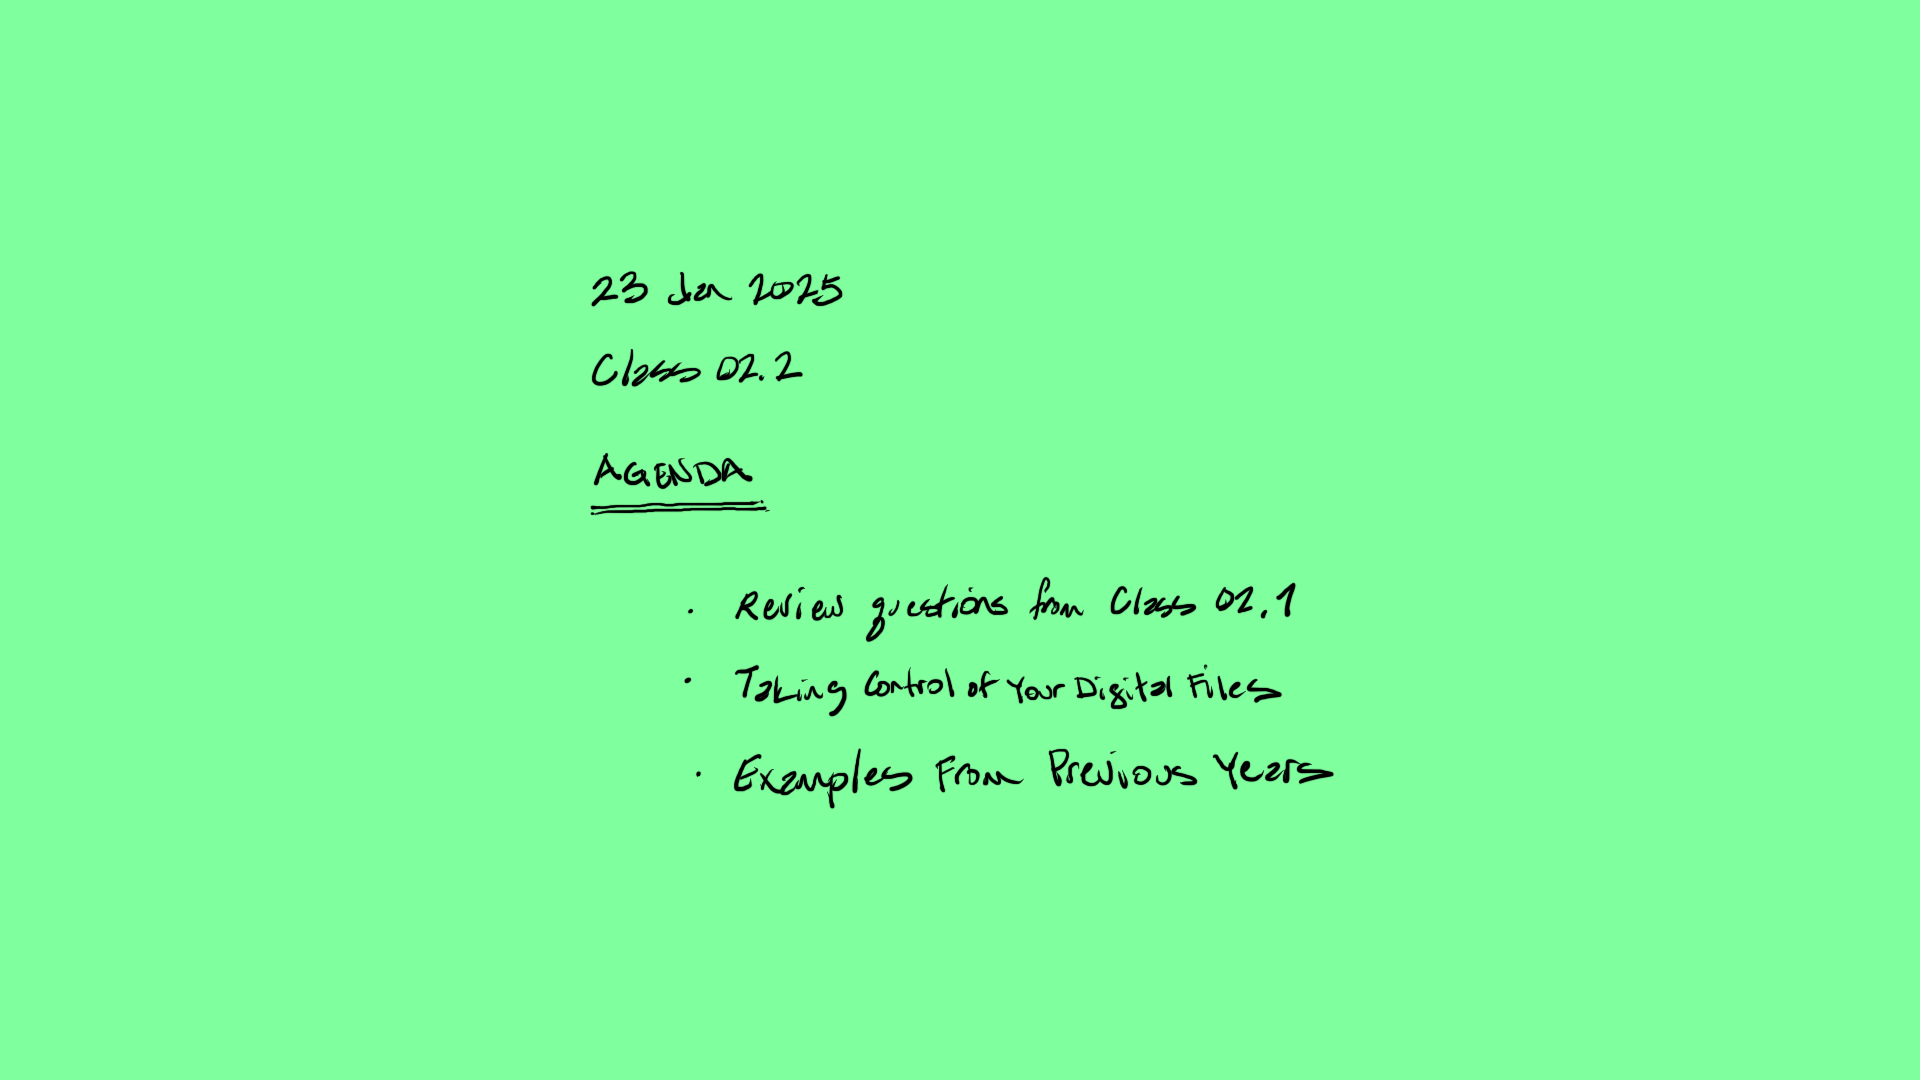 23 Jan 2025
Class 02.2
AGENDA
· Review questions from Class 02.1
· Taking Control of Your Digital Files
· Examples From Previous Years